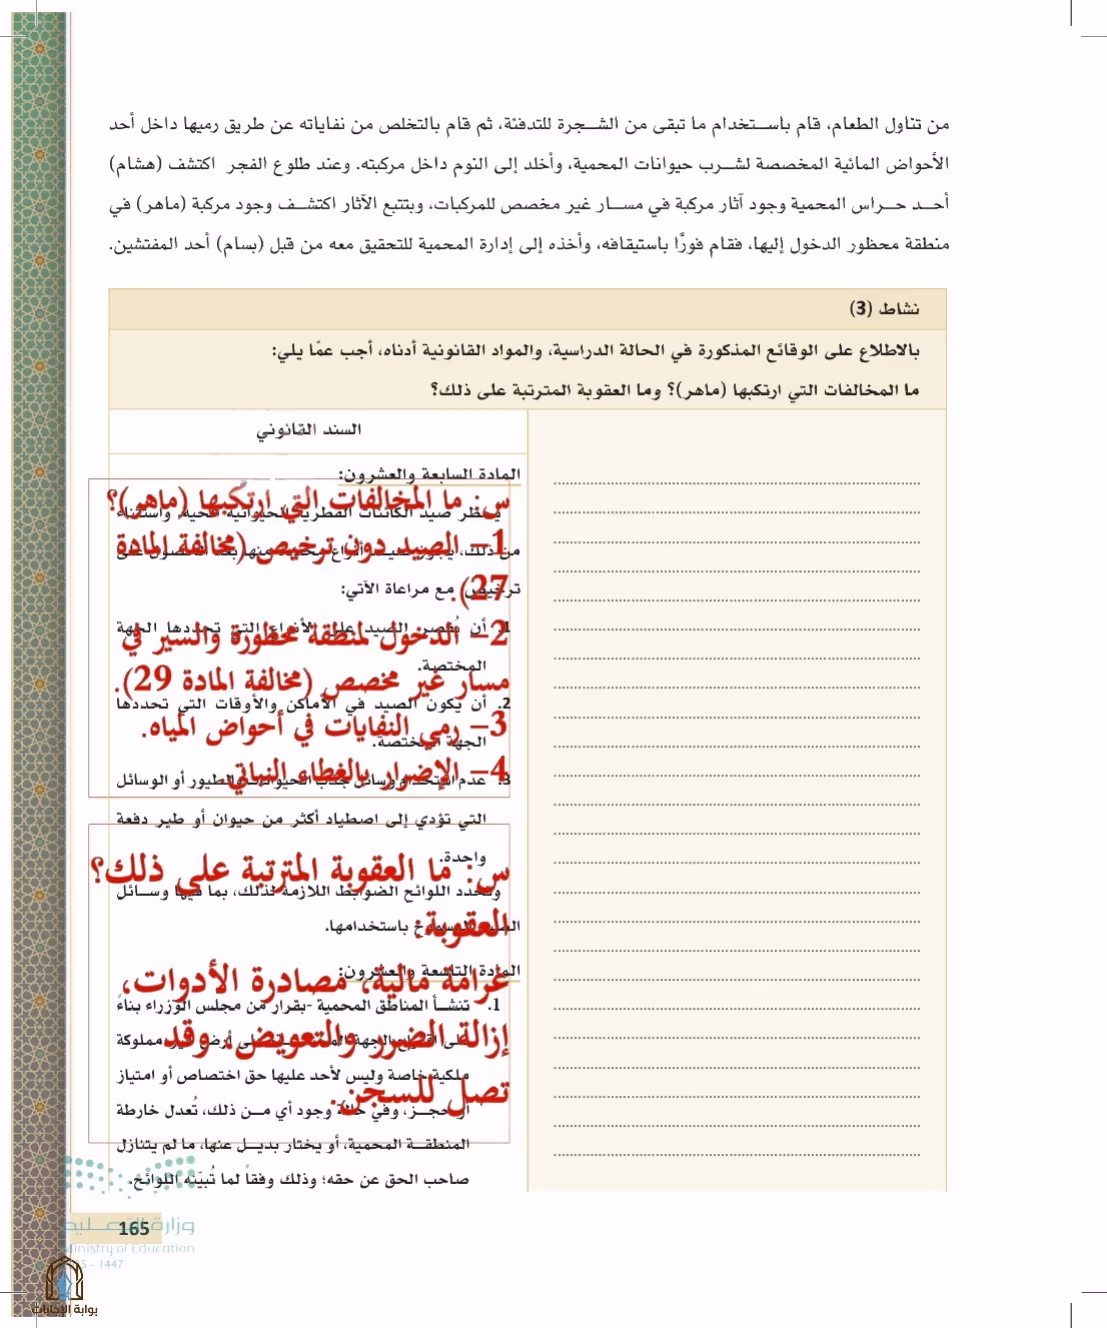 من تناول الطعام، قام باستخدام ما تبقى من الشجرة للتدفئة، ثم قام بالتخلص من نفاياته عن طريق رميها داخل أحد
الأحواض المائية المخصصة لشرب حيوانات المحمية، وأخلد إلى النوم داخل مركبته. وعند طلوع الفجر اكتشف (هشام)
أحد حراس المحمية وجود آثار مركبة في مسار غير مخصص للمركبات، وبتتبع الآثار اكتشف وجود مركبة (ماهر) في
منطقة محظور الدخول إليها، فقام فورًا باستيقافه، وأخذه إلى إدارة المحمية للتحقيق معه من قبل (بسام) أحد المفتشين.
نشاط (3)
بالاطلاع على الوقائع المذكورة في الحالة الدراسية، والمواد القانونية أدناه، أجب عمّا يلي:
ما المخالفات التي ارتكبها (ماهر)؟ وما العقوبة المترتبة على ذلك؟
السند القانوني
المادة السابعة والعشرون:
س: ما المخالفات التي ارتكبها (ماهر)؟
صيد الكائنات الفطرية الحيوانية الحية، واستثناء
1- الصيد دون ترخيص (مخالفة المادة
27).
مع مراعاة الآتي:
1. أن يقتصر الصيد على الأنواع التي تحددها الجهة
2- الدخول لمنطقة محظورة والسير في
المختصة.
مسار غير مخصص (مخالفة المادة 29).
2. أن يكون الصيد في الأماكن والأوقات التي تحددها
3- رمي النفايات في أحواض المياه.
الجهة المختصة.
4- الإضرار بالغطاء النباتي.
3. عدم استخدام وسائل جذب الحيوانات والطيور أو الوسائل
التي تؤدي إلى اصطياد أكثر من حيوان أو طير دفعة
واحدة.
س: ما العقوبة المترتبة على ذلك؟
وتحدد اللوائح الضوابط اللازمة لذلك، بما فيها وسائل
العقوبة:
باستخدامها.
المادة التاسعة والعشرون:
غرامة مالية، مصادرة الأدوات،
1. تنشأ المناطق المحمية -بقرار من مجلس الوزراء بناءً
إزالة الضرر والتعويض، وقد
مملوكة
ملكية خاصة وليس لأحد عليها حق اختصاص أو امتياز
تصل للسجن.
أو حجز، وفي حالة وجود أي من ذلك، تُعدل خارطة
المنطقة المحمية، أو يختار بديل عنها، ما لم يتنازل
صاحب الحق عن حقه؛ وذلك وفقاً لما تُبيّنه اللوائح.
وزارة التعليم
165
Ministry of Education
- 1447
بوابة الإجابات